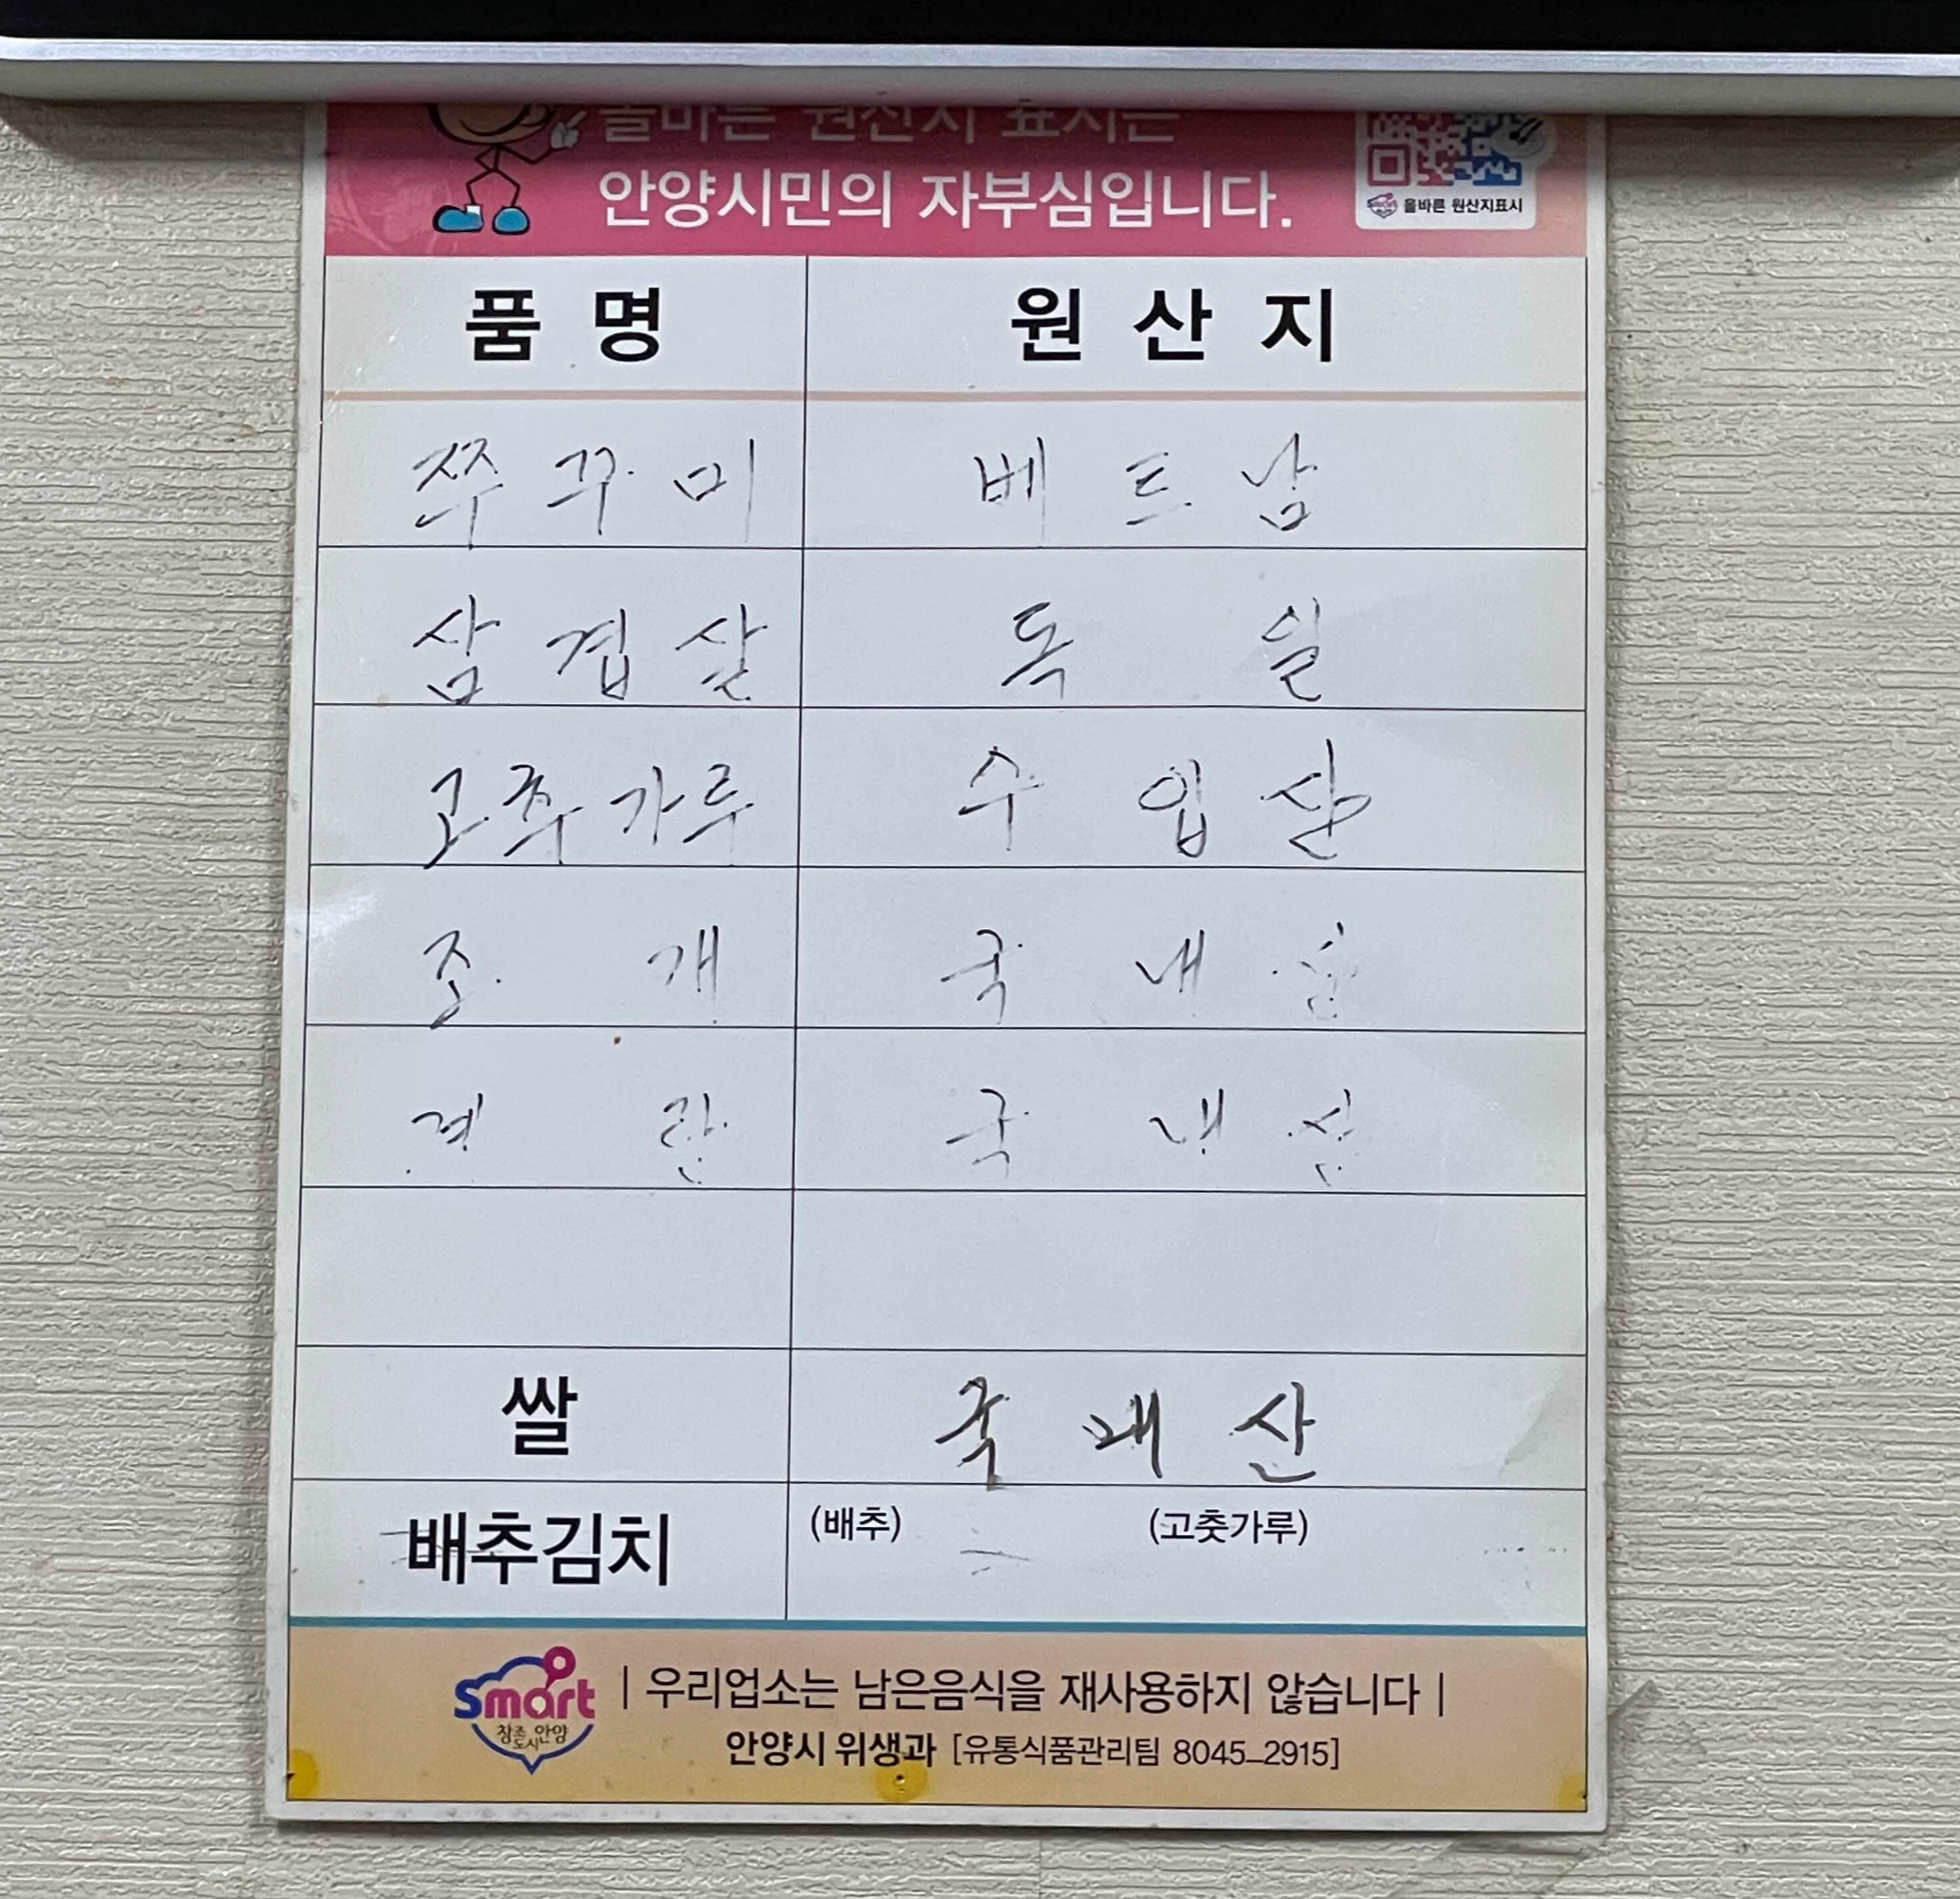 올바른 원산지 표시는
안양시민의 자부심입니다.
올바른 원산지표시
품명 원산지
쭈꾸미 베트남
삼겹살 독일
고추가루 수입산
조개 국내산
계란 국내산
쌀 국내산
배추김치 (배추) (고춧가루)
Smart
창조 안양
도시
| 우리업소는 남은음식을 재사용하지 않습니다 |
안양시 위생과 [유통식품관리팀 8045-2915]